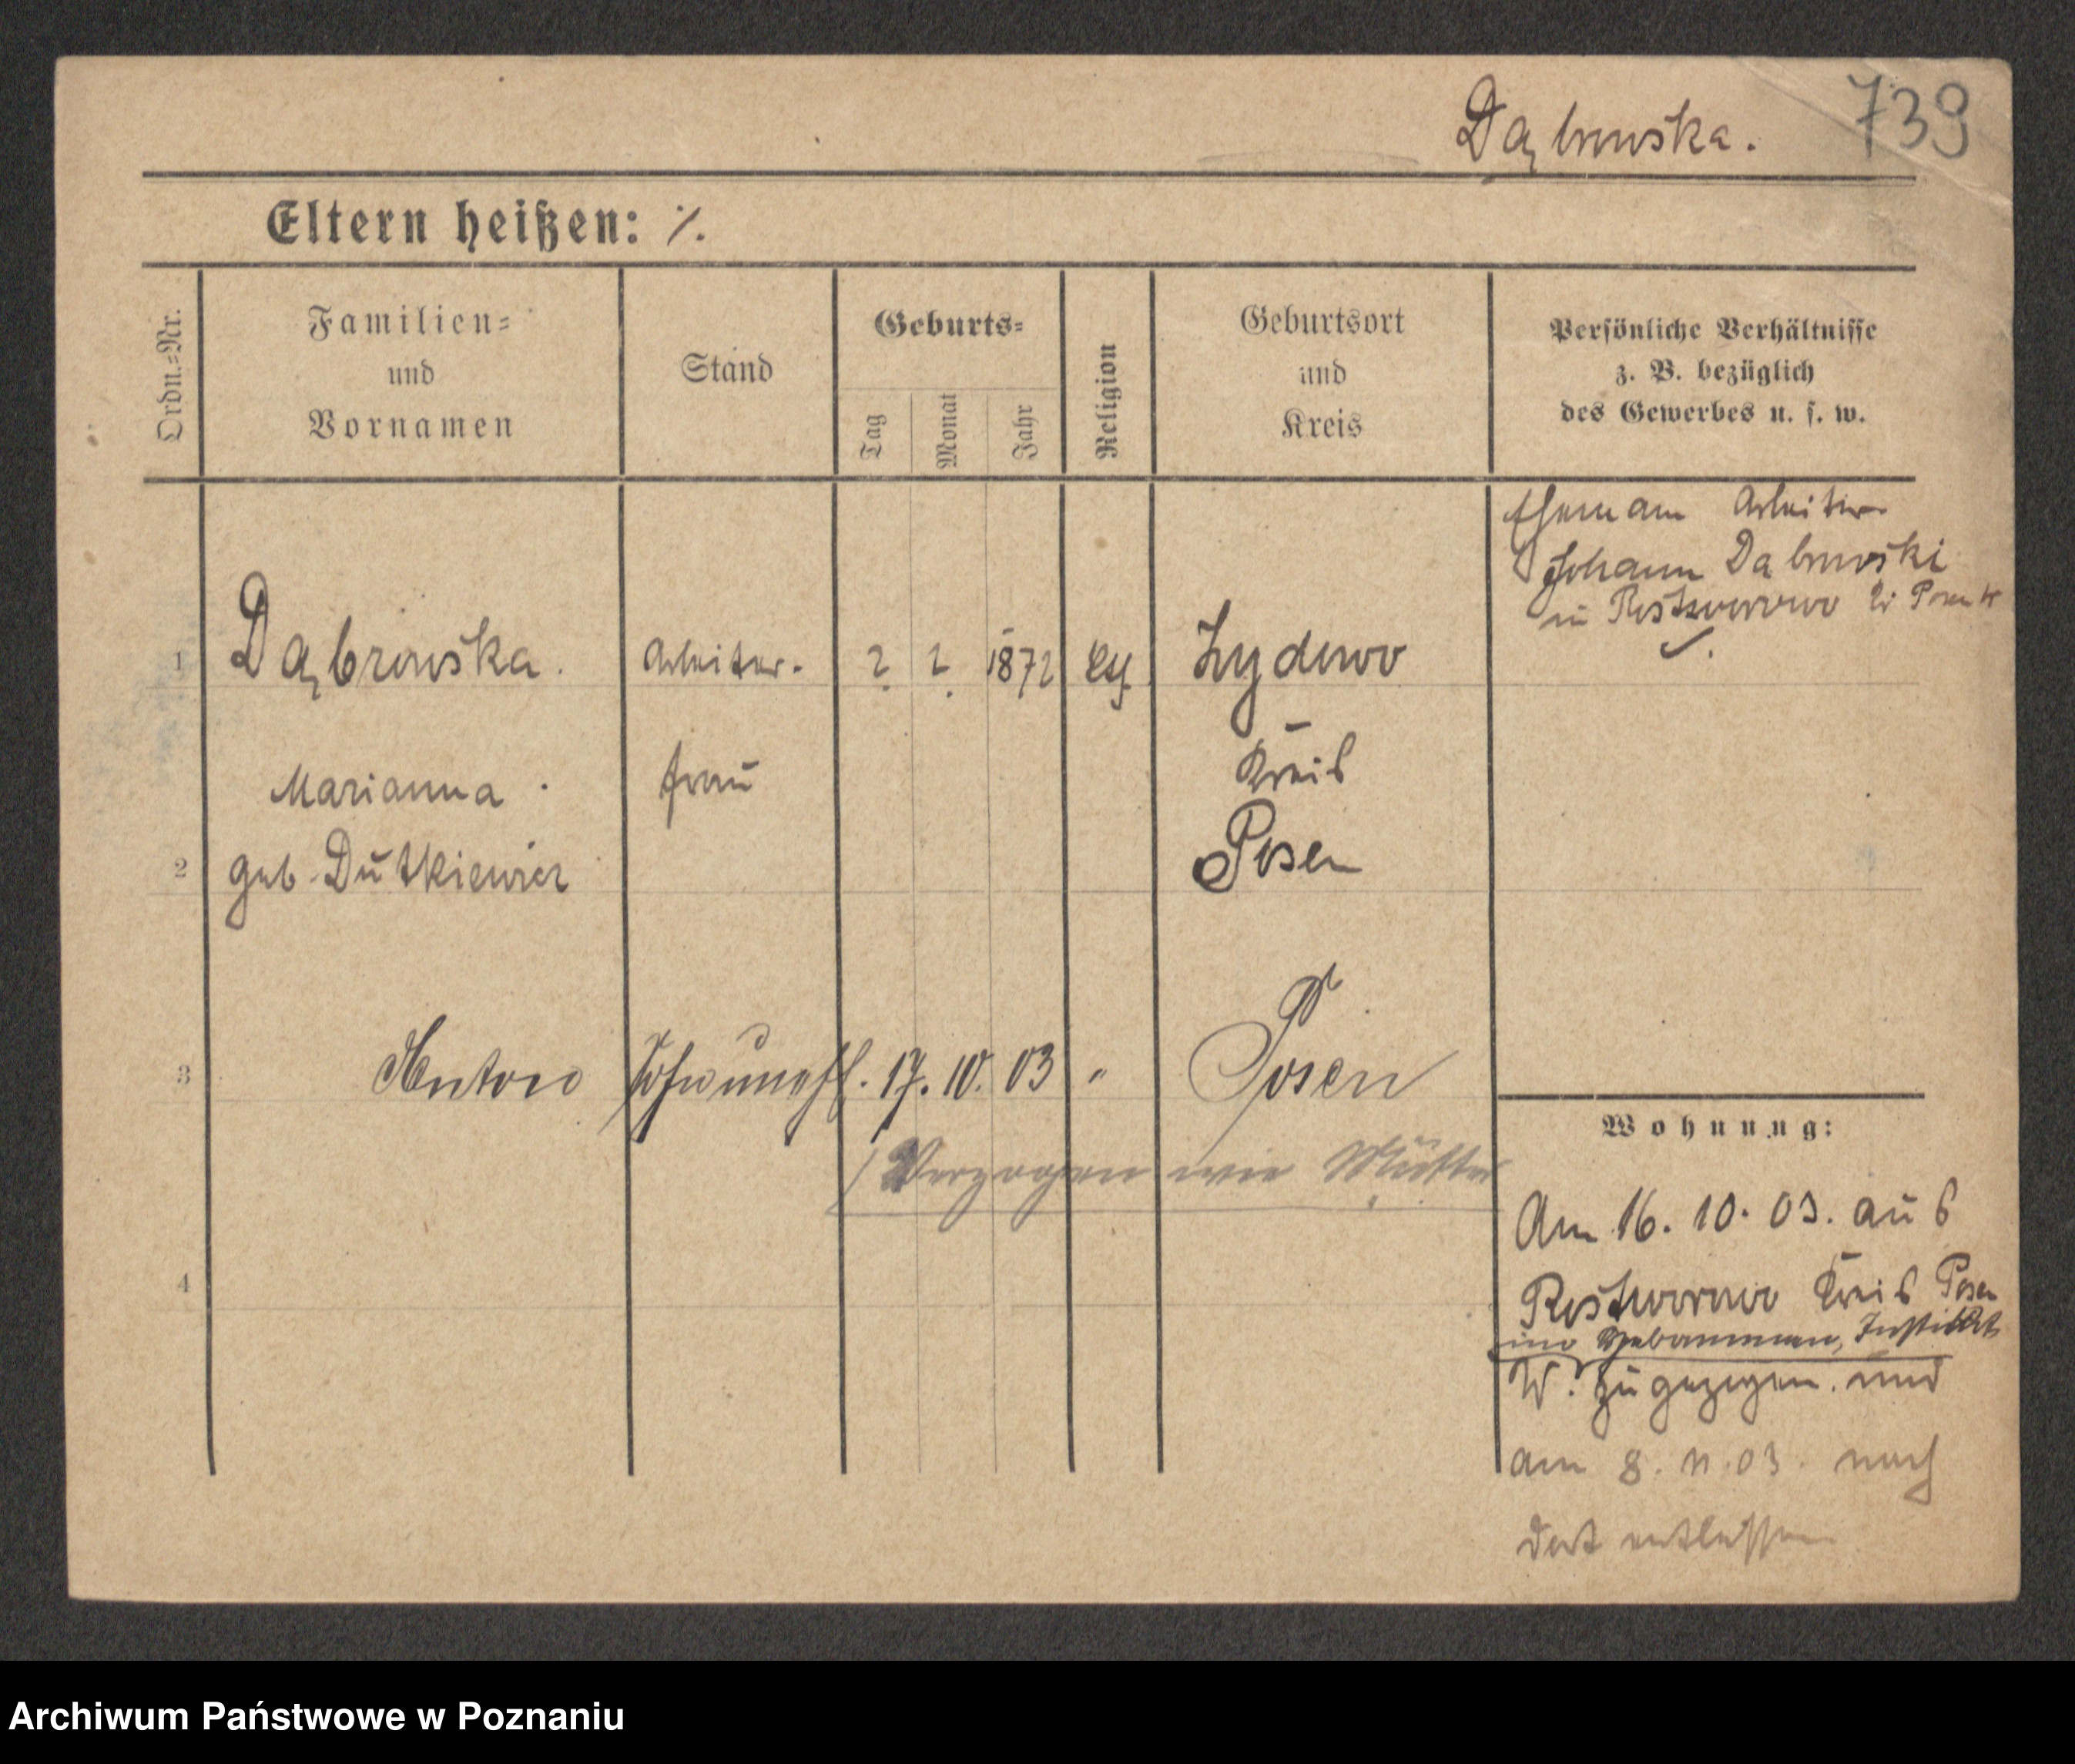 Dąbrowska.
739
Eltern heißen: ·/.
Ordn.=Nr.
Familien=
und
Vornamen
Stand
Geburts=
Tag
Monat
Jahr
Religion
Geburtsort
und
Kreis
Persönliche Verhältnisse
z. B. bezüglich
des Gewerbes u. s. w.
Ehemann Arbeiter
Johann Dabrowski
in Rostworowo Kr Posen W
1 Dąbrowska. Arbeiter- ? ? 1872 Zydowo
Marianna frau Kreis
2 geb. Dutkiewicz Posen
3 Anton Sohn unehl. 17. 10. 03 " Posen
Verzogen wie Mutter
4
Wohnung:
Am 16. 10. 03. aus
Rostworowo Kreis Posen
ins Hebammen, Institut
W. zugezogen. und
am 8. 11. 03. nach
dort entlassen